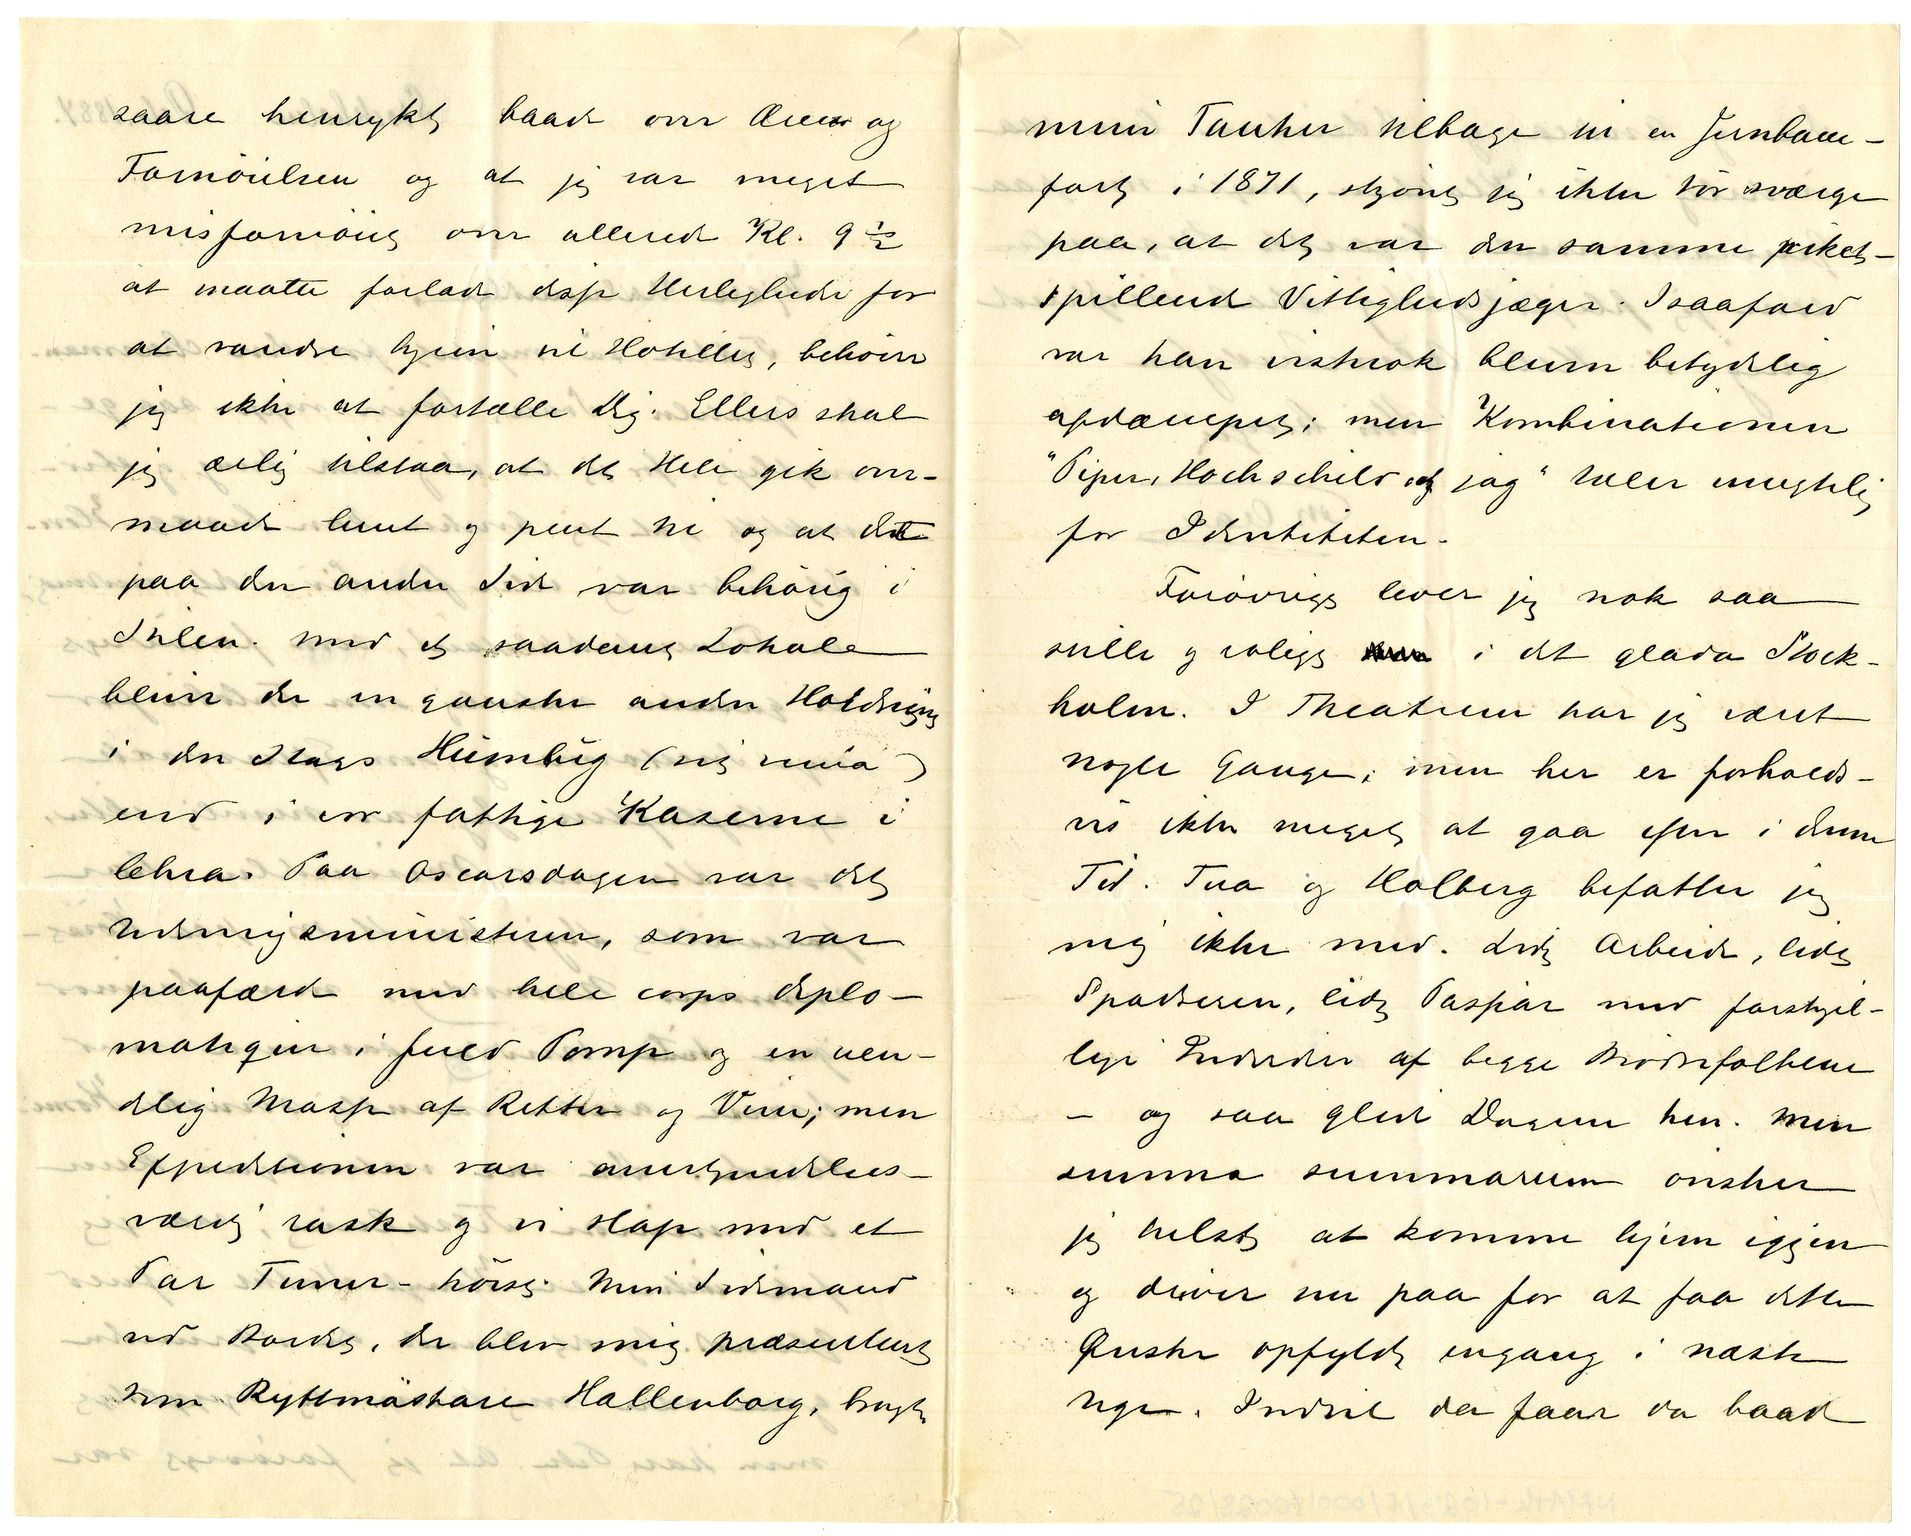 saare henrykt baade over Æren og
Fornöielsen og at jeg var meget
misfornöiet over allerede Kl. 9 ½
at maatte forlade disse Herligheder for
at vandre hjem til Hotellet, behöver
jeg ikke at fortælle Dig. Ellers skal
jeg ærlig tilstaa, at det Hele gik over-
maade lunt og pent til og at det
paa den anden Side var behörig i
Stilen. Med et saadant Lokale
bliver der en ganske anden Holdning
i den Slags Humbug
end i vor fattige Kaserne i
Chra. Paa Oscarsdagen var det
Udenrigsministeren, som var
paafærde med hele corps diplo-
matique i fuld Pomp og en uen-
delig Masse af Retter og Vine; men
Expeditionen var anerkjendelses-
værdig rask og vi slap med et
Par Timer - höist. Min Sidemand
ved Bordet, der blev mig præsenteret
som Ryttmästare Hallenborg, bragte
mine Tanker tilbage til en Jernbane-
fart i 1871, skjönt jeg ikke tör sværge
paa, at det var den samme piket-
spillende Vittighedsjæger. Isaafald
var han vistnok bleven betydelig
afdæmpet; men Kombinationen
"Piper, Hochschild och jag" taler mægtig
for Identiteten.
Forövrigt lever jeg nok saa
stille og roligt i det glada Stock-
holm. I Theatrene har jeg været
nogle Gange; men her er forholds-
vis ikke meget at gaa efter i denne
Tid. Tua og Holberg befatter jeg
mig ikke med. Lidt Arbeide, lidt
Spadseren, lidt Passiar med forskjel-
lige Individer af begge Brödrefolkene
- og saa glide Dagene hen. Men
summa summarum önsker
jeg helst at komme hjem igjen
og driver nu paa for at faa dette
Önske opfyldt engang i næste
Uge. Indtil da faar da baade